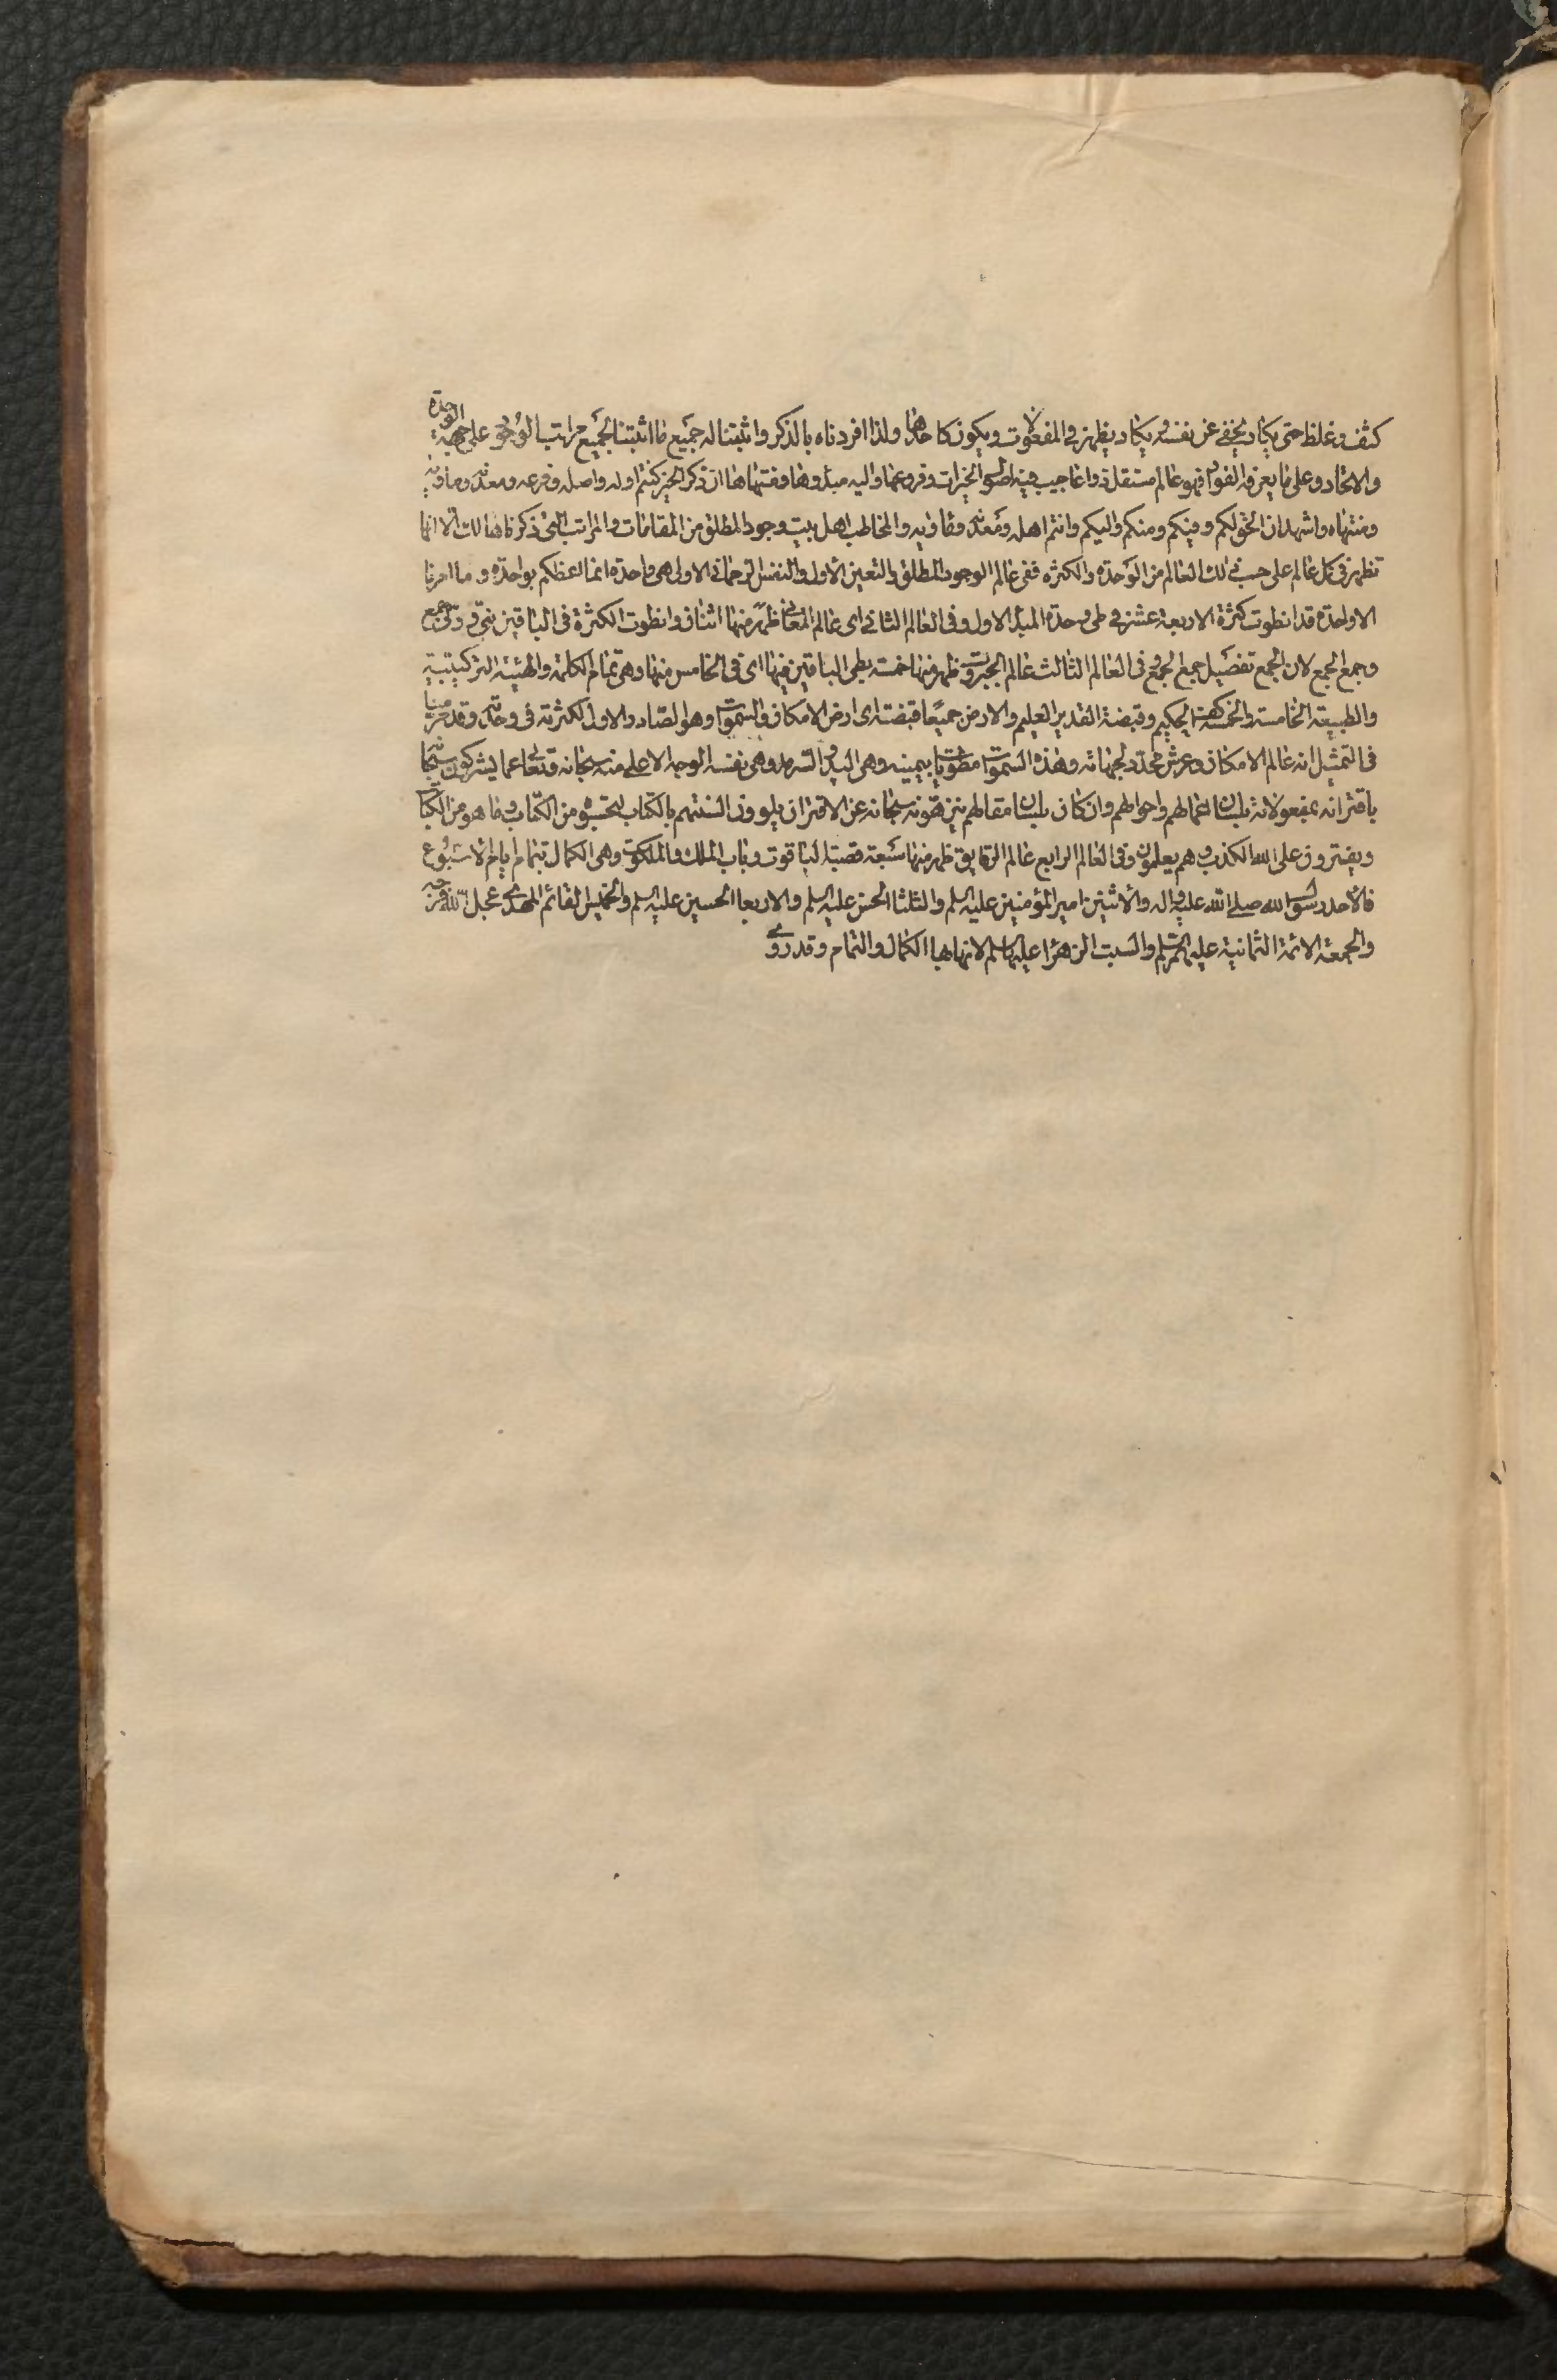 كثف وغلظ حتى يكاد يخفى عن نفسه ويكاد يظهر في المفعولات ويكون كاحدها ولذا افردناه بالذكر واثبتنا له جميع ما اثبتنا لجميع مراتب الوجود على جهة الوحدة
والاتحاد وعلى ما يعرفه الفؤاد فهو عالم مستقل ذو اعاجيب فيه اصول الخيرات وفروعها واليه مبدؤها ومنتهاها ان ذكر الخير كنتم اوله واصله وفرعه ومعدنه وماويه
ومنتهاه واشهد ان الحق لكم وفيكم ومنكم واليكم وانتم اهله ومعدنه وماويه والمخاطب اهل بيت وجود المطلق من المقامات والمراتب التي ذكرناها لك الا انها
تظهر في كل عالم على حسب ذلك العالم من الوحدة والكثرة ففي عالم الوجود المطلق والتعين الاول والنفس الرحماني الاولى هي واحدة انما اعظكم بواحدة وما امرنا
الا واحدة قد انطوت كثرة الاربعة عشر في طي وحدة المبدء الاول وفي العالم الثاني اي عالم المعاني ظهر منها اثنان وانطوت الكثرة في الباقين نبي وولي جمع
وجمع الجمع لان الجمع تفصيل جمع الجمع وفي العالم الثالث عالم الجبروت ظهر منها خمسة بطي الباقين فيها اي في الخامس منها وهي تمام الكلمة والهيئة التركيبية
والطبيعة الخامسة والخمسة كهيئة الحكيم وقبضة القدير العليم والارض جميعا قبضته اي ارض الامكان والسموات وهو الصاد والاول لكثرته في وحدته وقد مر بنا
في التمثيل انه عالم الامكان وعرش محدد لجهاته وهذه السموات مطويات بيمينه وهي اليد السرمد وهي نفسه الوجه الاعلى منه سبحانه وتعالى عما يشركون سبحانه
باقترانه بمفعولاته بلسان اعمالهم واحوالهم وان كان بلسان مقالهم ينزهونه سبحانه عن الاقتران يلوون السنتهم بالكتاب لتحسبوه من الكتاب وما هو من الكتاب
ويفترون على الله الكذب وهم يعلمون وفي العالم الرابع عالم الرقايق ظهر منها سبعة قصبة الياقوت وباب الملك والملكوت وهي الكمال بتمام ايام الاسبوع
فالاحد رسول الله صلى الله عليه واله والاثنين امير المؤمنين عليه السلم والثلثا الحسن عليه السلم والاربعا الحسين عليه السلم والخميس القائم المهدي عجل الله فرجه
والجمعة الائمة الثمانية عليهم السلم والسبت الزهرا عليها السلم لانها بها الكمال والتمام وقد روي